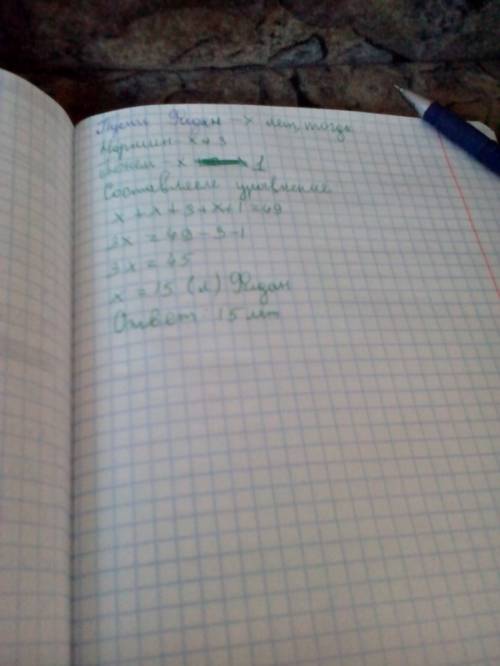 Пусть Фидан - х лет, тогда
Нармин - х+3
х 1
Составляем уравнение
х + х + 3 + х + 1 = 49
3х = 49 - 3 - 1
3х = 45
х = 15 (л) Фидан
Ответ 15 лет